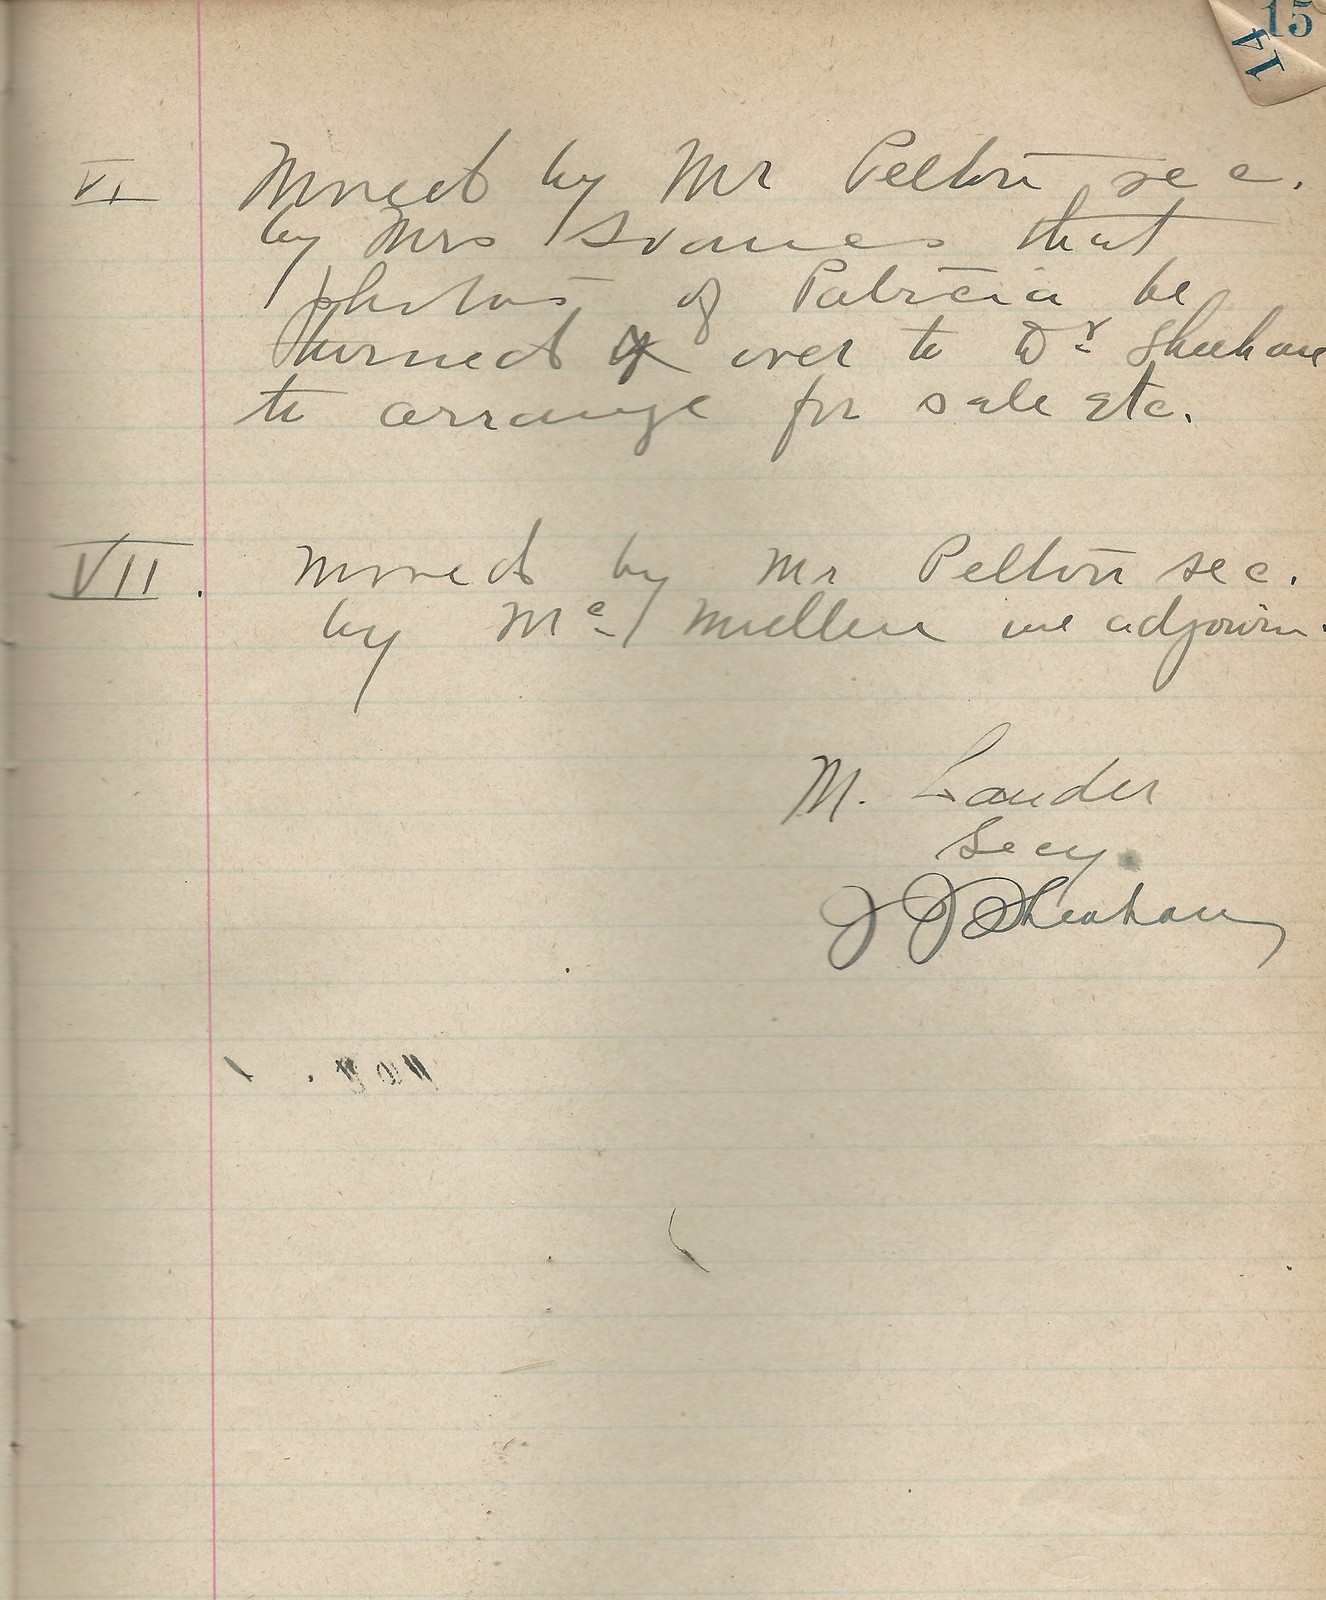 15
14
VI Moved by Mr Pelton sec.
by Mrs that
photos of Patricia be
turned over to Dr Sheehane
to arrange for sale etc.
VII. Moved by Mr Pelton sec.
by Mc Mullen we adjourn.
M. Lauder
Secy.
J J Sheahan